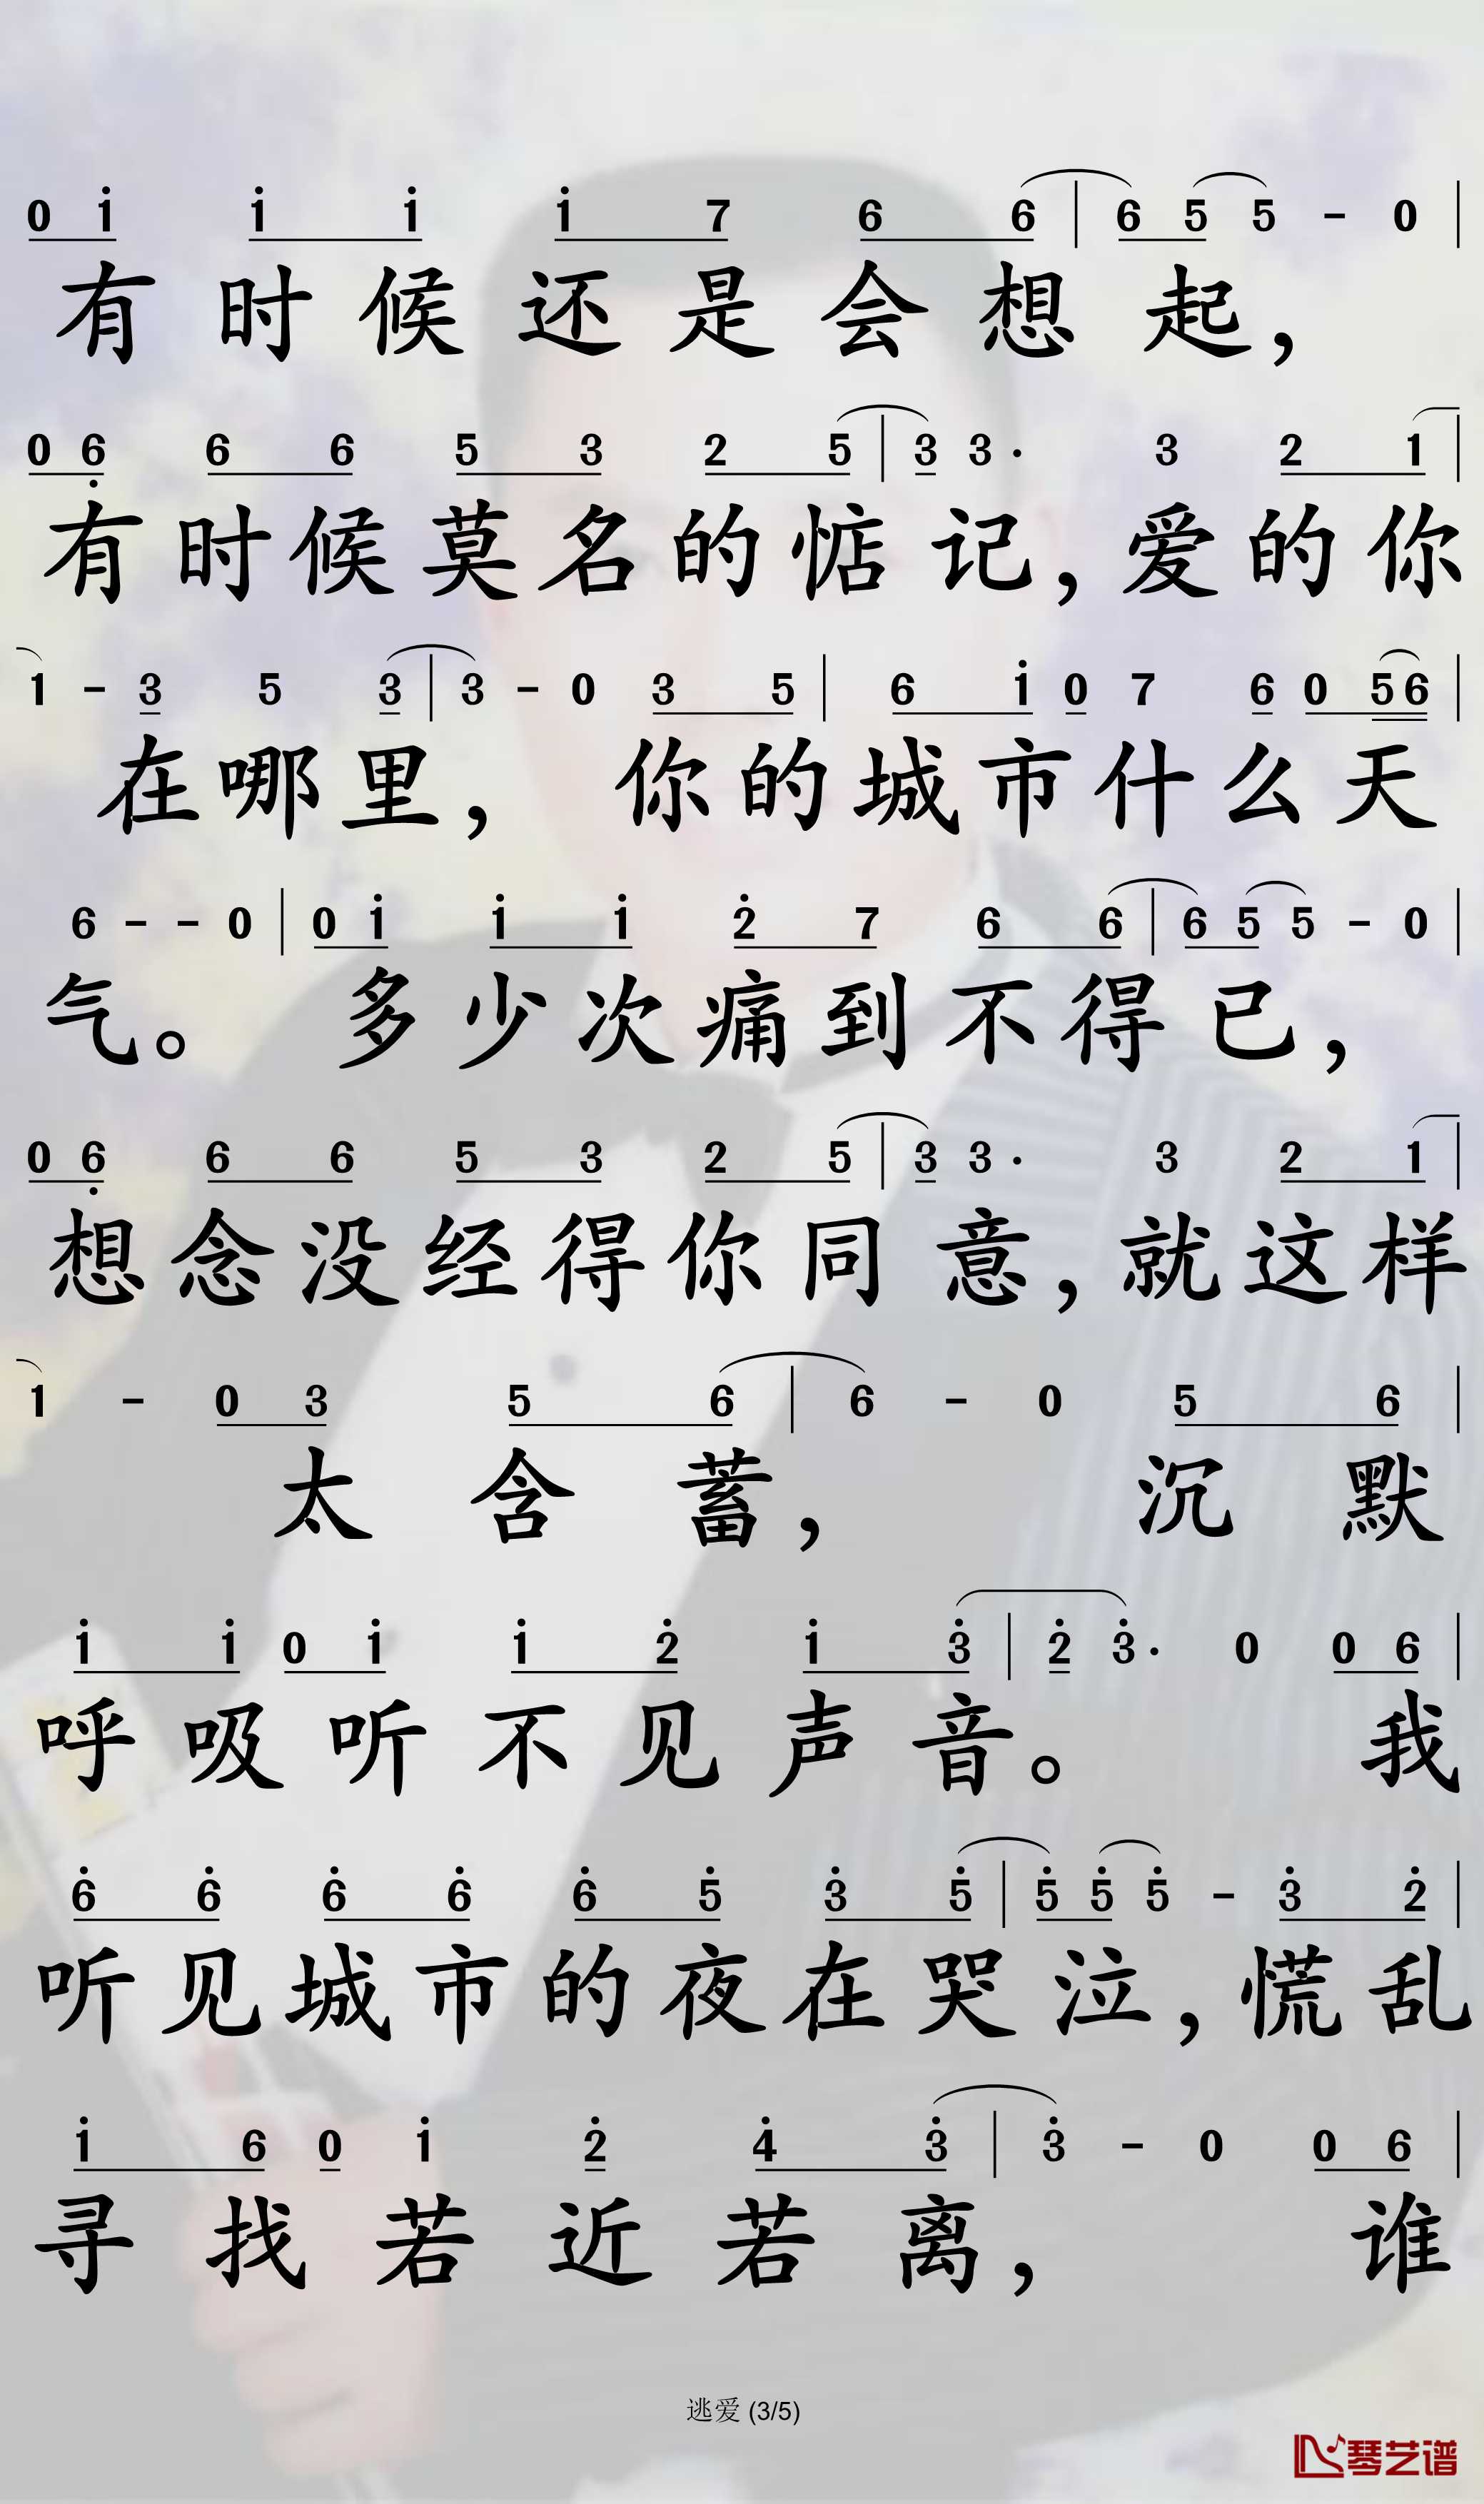 0 1 1 1 1 7 6 6 | 6 5 5 - 0 |
有时候还是会想起，
0 6 6 6 5 3 2 5 | 3 3 · 3 2 1 |
有时候莫名的惦记，爱的你
1 - 3 5 3 | 3 - 0 3 5 | 6 1 0 7 6 0 5 6 |
在哪里，你的城市什么天
6 - - 0 | 0 1 1 1 2 7 6 6 | 6 5 5 - 0 |
气。多少次痛到不得已，
0 6 6 6 5 3 2 5 | 3 3 · 3 2 1 |
想念没经得你同意，就这样
1 - 0 3 5 6 | 6 - 0 5 6 |
太含蓄，沉默
1 1 0 1 1 2 1 3 | 2 3 · 0 0 6 |
呼吸听不见声音。我
6 6 6 6 6 5 3 5 | 5 5 5 - 3 2 |
听见城市的夜在哭泣，慌乱
1 6 0 1 2 4 3 | 3 - 0 0 6 |
寻找若近若离，谁
逃爱 (3/5)
琴艺谱